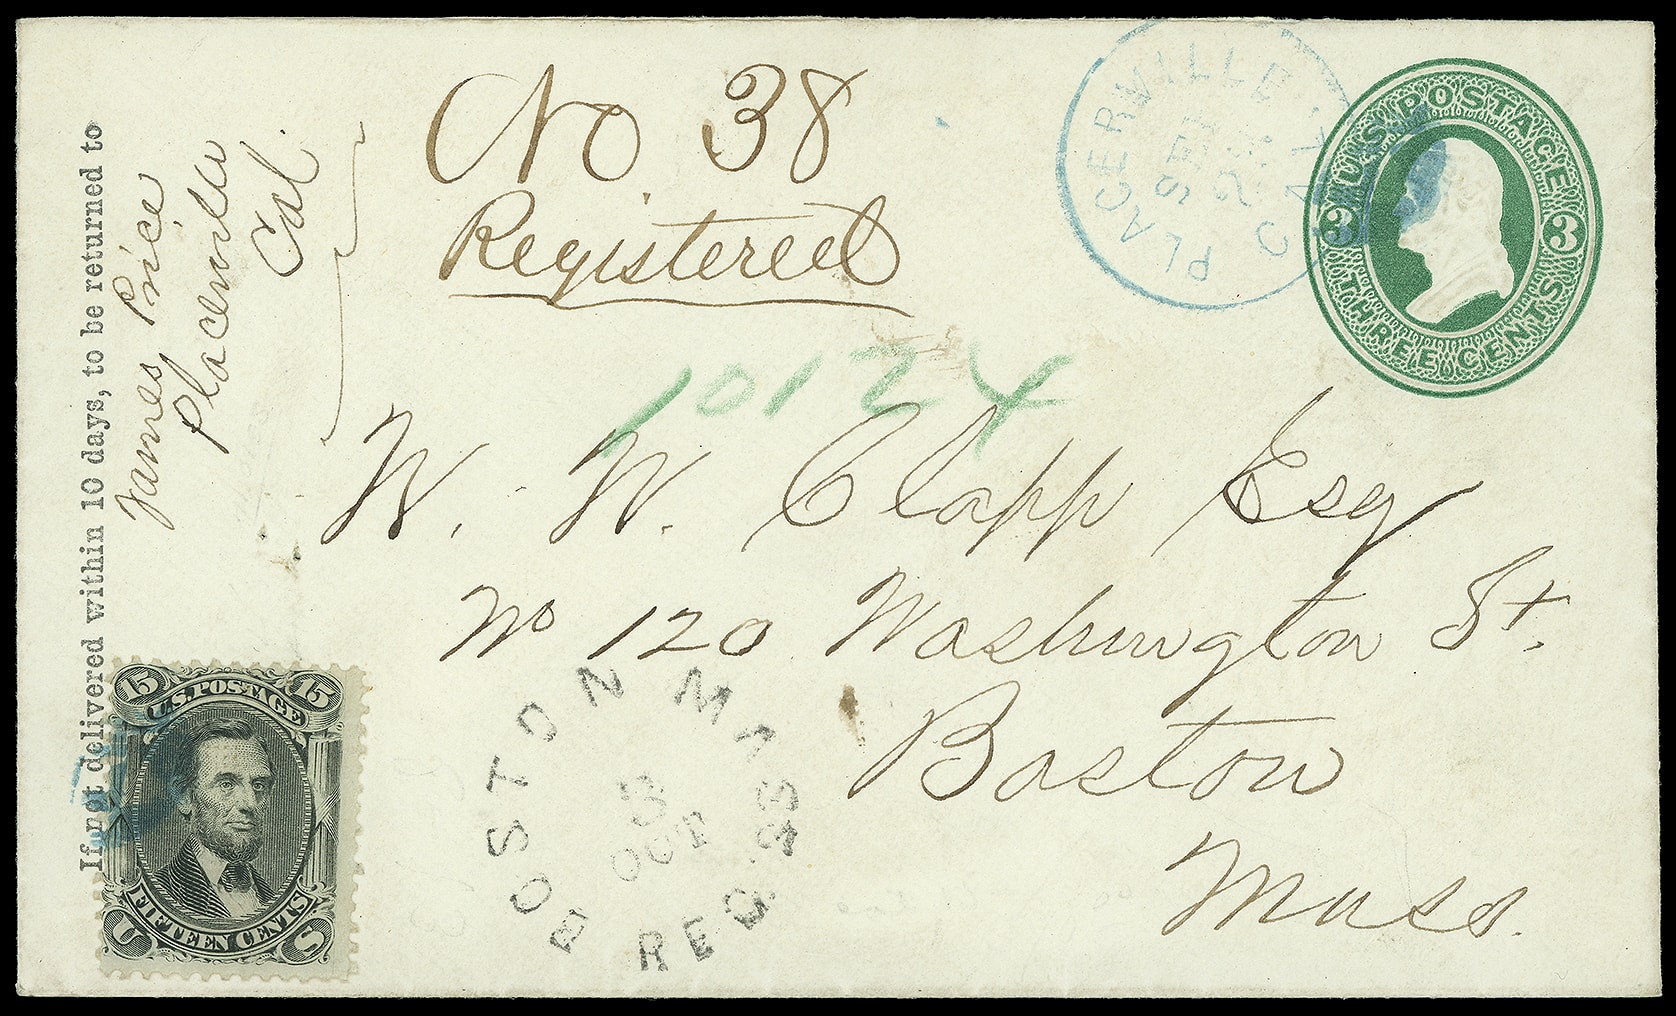 No. 38
Registered
PLACERVILLE CAL.
SEP
U.S. POSTAGE
3 3
THREE CENTS
If not delivered within 10 days, to be returned to
James Price
Placerville
Cal.
10124
W. W. Clapp Esq
No 120 Washington St.
Boston
Mass.
15 15
U.S. POSTAGE
FIFTEEN CENTS
U S
BOSTON MASS.
3
OCT
REG'D